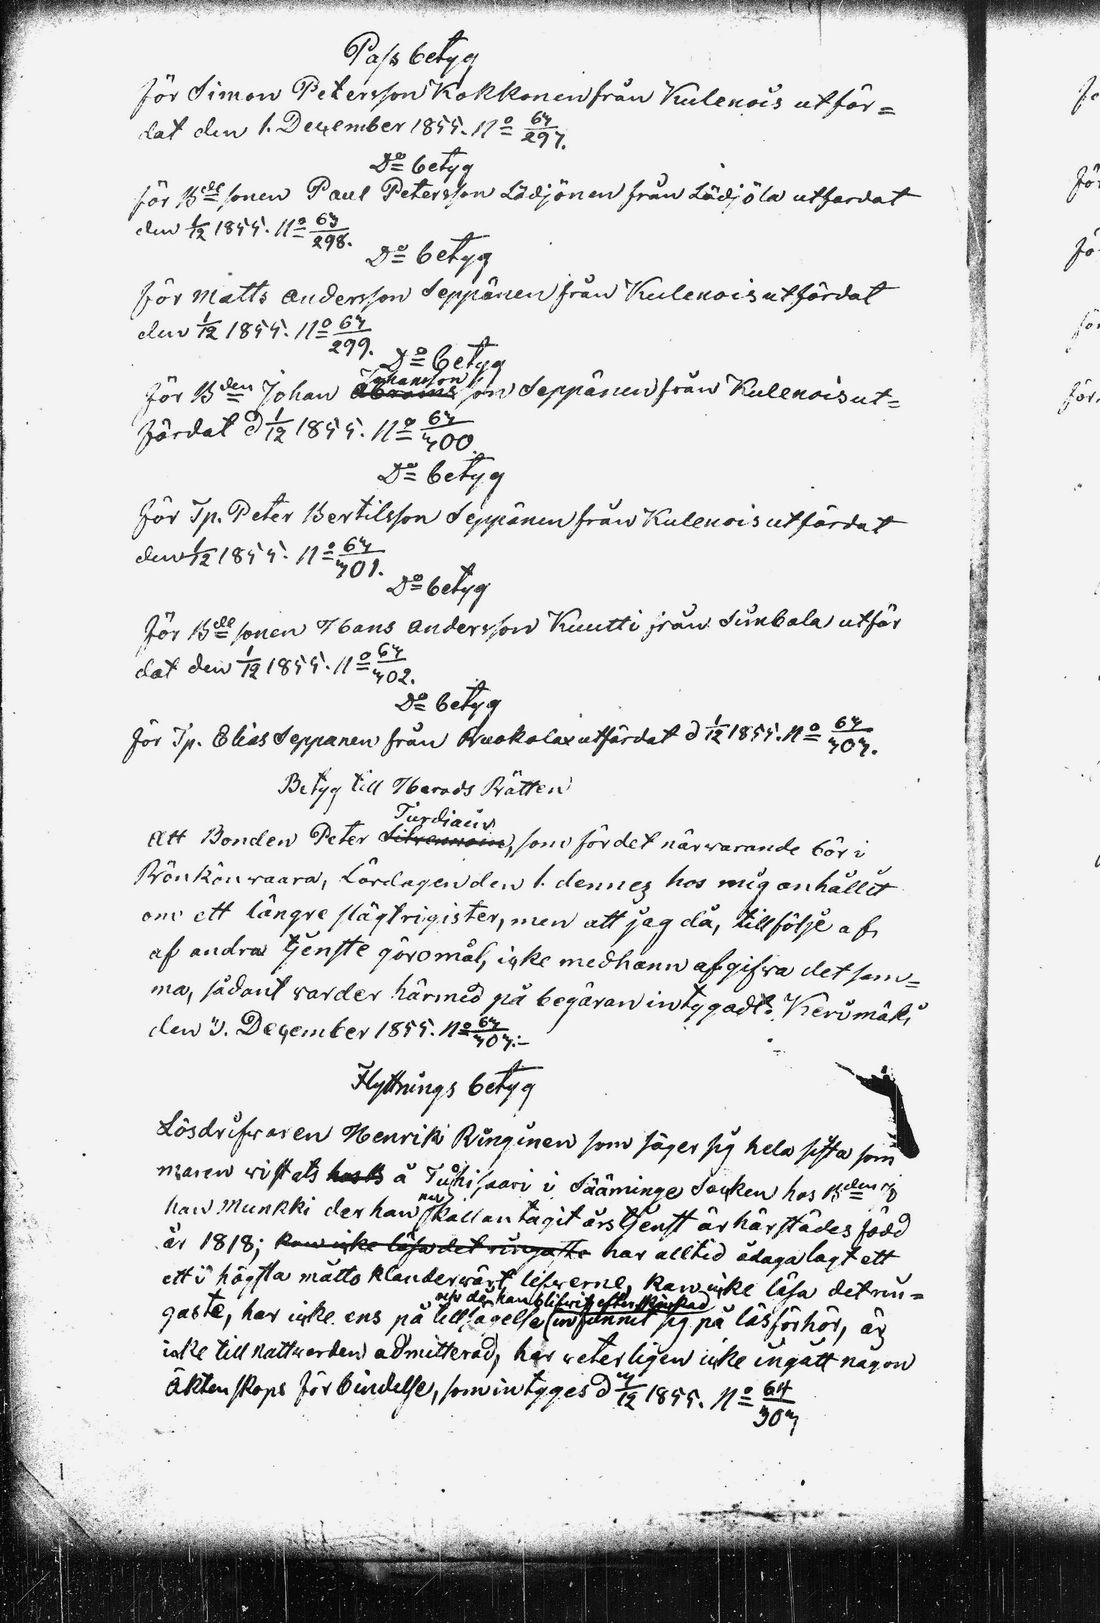 Pass betyg
för Simon Petersson Kokkonen från Kulenois utfär=
dat den 1. December 1855. No 64/297.
Do betyg
för Bde sonen Paul Petersson Lödjönen från Lödjölä utfärdat
den 1/12 1855. No 64/298.
Do betyg
för Matts Andersson Seppänen från Kulenois utfärdat
den 1/12 1855. No 64/299.
Do betyg
Johansson
för Bden Johan son Seppänen från Kulenois ut=
färdat d 1/12 1855. No 64/300.
Do betyg
för Tp. Peter Bertilsson Seppänen från Kulenois utfärdat
den 1/12 1855. No 64/301.
Do betyg
för Bde sonen Hans Andersson Kuutti från Simbala utfär
dat den 1/12 1855. No 64/302.
Do betyg
för Tp. Elias Seppänen från Ruokolax utfärdat d 1/12 1855. No 64/303.
Betyg till Herads Rätten
Att Bonden Peter som för det närwarande bor i
Rönkönwaara, Lördagen den 1. dennes hos mig anhållit
om ett längre slägtrigister, men att jag då, tillfölje af
af andra tjenste göromål, icke medhann afgifwa det sam=
ma, sådant warder härmed på begäran intygadt. Kerimäki
den 3. December 1855. No 64/303.-
Flyttnings betyg
Lösdrifwaren Henrik Ringinen som säger sig hela sista som
maren wistats å Tuhisaari i Sääminge Socken hos Bden
han Munkki der han nu skall antagit årstjenst är härstädes född
år 1818; kan icke läsa det ringaste har alltid ådagalagt ett
ett i högsta måtto klanderwärt lefwerne, kan icke läsa det rin=
gaste, har icke ens på tillsägelse infunnit sig på läsförhör, är
icke till nattwarden admitterad, har weterligen icke ingått någon
Äktenskaps förbindelse, som intyges d 3/12 1855. No 64/303